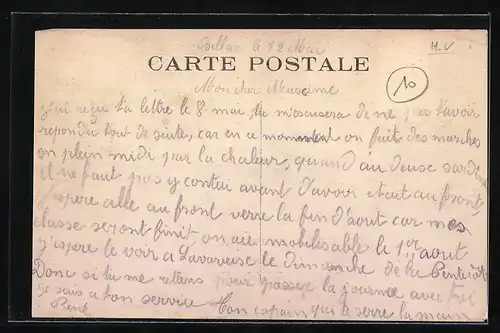 Bellac le 12 Mai
H.V
CARTE POSTALE
10
Mon cher Maxime
j'ai reçu ta lettre le 8 mai, tu m'escusera de ne pas t'avoir
répondu tout de suite, car en ce momentent on fait des marches
en plein midi par la chaleur, quand au deuse
il ne faut pas y contai avant d'avoir était au front
j'espère allé au front verre la fin d'aout car mes
classe seront finit on aie mobilisable le 1er aout
j'espère le voir a le dimanche de la Pentecôte
Donc si tu me retiens pour passer la journée avec toi
je suis a ton service Ton copain qui te serre la main
René